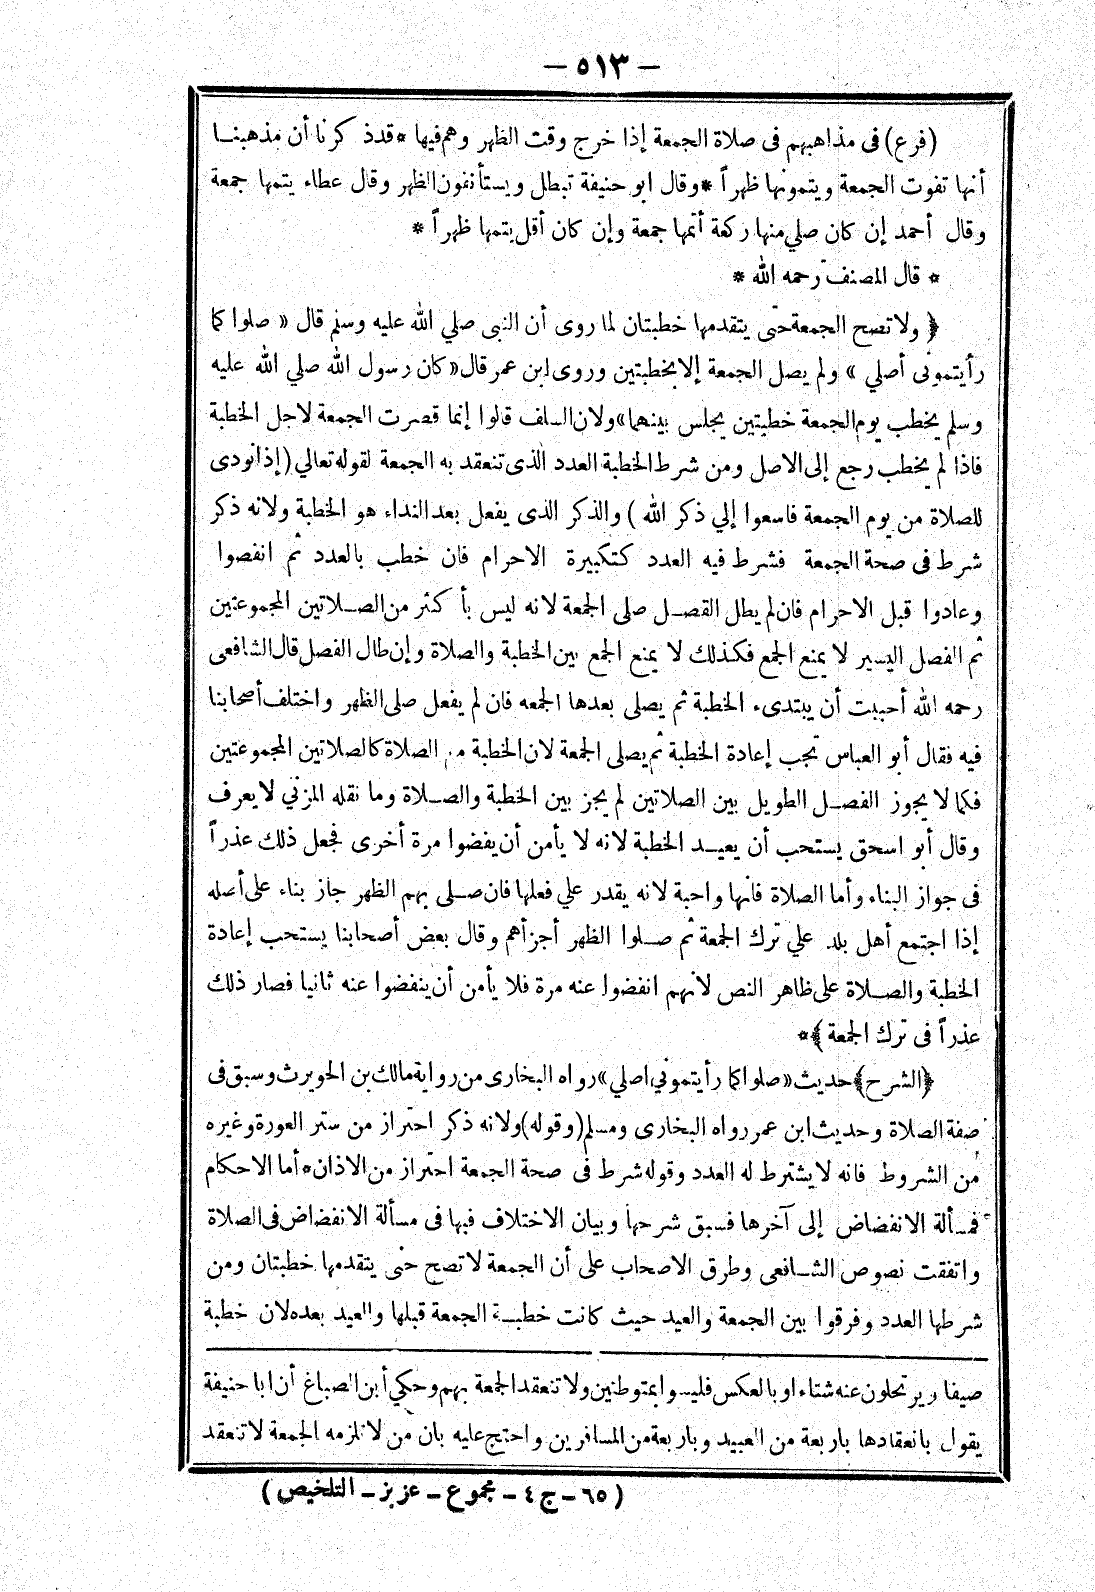 — ٥١٣ —
(فرع) فى مذاهبهم فى صلاة الجمعة إذا خرج وقت الظهر وهم فيها * قد ذكرنا أن مذهبنا
أنها تفوت الجمعة ويتمونها ظهراً * وقال ابو حنيفة تبطل ويستأنفون الظهر وقال عطاء يتمها جمعة
وقال أحمد إن كان صلي منها ركعة أتمها جمعة وإن كان أقل يتمها ظهراً *
* قال المصنف رحمه الله *
﴿ ولا تصح الجمعة حتى يتقدمها خطبتان لما روى أن النبى صلي الله عليه وسلم قال « صلوا كما
رأيتمونى أصلي » ولم يصل الجمعة إلا بخطبتين وروى ابن عمر قال « كان رسول الله صلي الله عليه
وسلم يخطب يوم الجمعة خطبتين يجلس بينهما » ولان السلف قالوا إنما قصرت الجمعة لاجل الخطبة
فاذا لم يخطب رجع إلى الاصل ومن شرط الخطبة العدد الذى تنعقد به الجمعة لقوله تعالي (إذا نودى
للصلاة من يوم الجمعة فاسعوا إلي ذكر الله ) والذكر الذى يفعل بعد النداء هو الخطبة ولانه ذكر
شرط فى صحة الجمعة فشرط فيه العدد كتكبيرة الاحرام فان خطب بالعدد ثم انفصوا
وعادوا قبل الاحرام فان لم يطل الفصل صلى الجمعة لانه ليس بأكثر من الصلاتين المجموعتين
ثم الفصل اليسير لا يمنع الجمع فكذلك لا يمنع الجمع بين الخطبة والصلاة وإن طال الفصل قال الشافعى
رحمه الله أحببت أن يبتدىء الخطبة ثم يصلى بعدها الجمعه فان لم يفعل صلى الظهر واختلف أصحابنا
فيه فقال أبو العباس تجب إعادة الخطبة ثم يصلى الجمعة لان الخطبة مع الصلاة كالصلاتين المجموعتين
فكما لا يجوز الفصل الطويل بين الصلاتين لم يجز بين الخطبة والصلاة وما نقله المزني لا يعرف
وقال أبو اسحق يستحب أن يعيد الخطبة لانه لا يأمن أن يفضوا مرة أخرى فجعل ذلك عذراً
فى جواز البناء وأما الصلاة فانها واجبة لانه يقدر علي فعلها فان صلى بهم الظهر جاز بناء على أصله
إذا اجتمع أهل بلد علي ترك الجمعة ثم صلوا الظهر أجزأهم وقال بعض أصحابنا يستحب إعادة
الخطبة والصلاة على ظاهر النص لانهم انفضوا عنه مرة فلا يأمن أن ينفضوا عنه ثانيا فصار ذلك
عذراً فى ترك الجمعة ﴾ *
﴿الشرح﴾ حديث « صلوا كما رأيتمونى اصلي » رواه البخارى من رواية مالك بن الحويرث وسبق فى
صفة الصلاة وحديث ابن عمر رواه البخارى ومسلم (وقوله) ولانه ذكر احتراز من ستر العورة وغيره
من الشروط فانه لا يشترط له العدد وقوله شرط فى صحة الجمعة احتراز من الاذان * أما الاحكام
فمسألة الانفضاض إلى آخرها فسبق شرحها وبيان الاختلاف فيها فى مسألة الانفضاض فى الصلاة
واتفقت نصوص الشافعى وطرق الاصحاب على أن الجمعة لا تصح حتى يتقدمها خطبتان ومن
شرطها العدد وفرقوا بين الجمعة والعيد حيث كانت خطبة الجمعة قبلها والعيد بعده لان خطبة
صيفا ويرتحلون عنه شتاء او بالعكس فليسوا بمتوطنين ولا تنعقد الجمعة بهم وحكي أبن الصباغ أن ابا حنيفة
يقول بانعقادها باربعة من العبيد وباربعة من المسافرين واحتج عليه بان من لا تلزمه الجمعة لا تنعقد
( ٦٥ – ج ٤ – مجموع – عزيز – التلخيص )